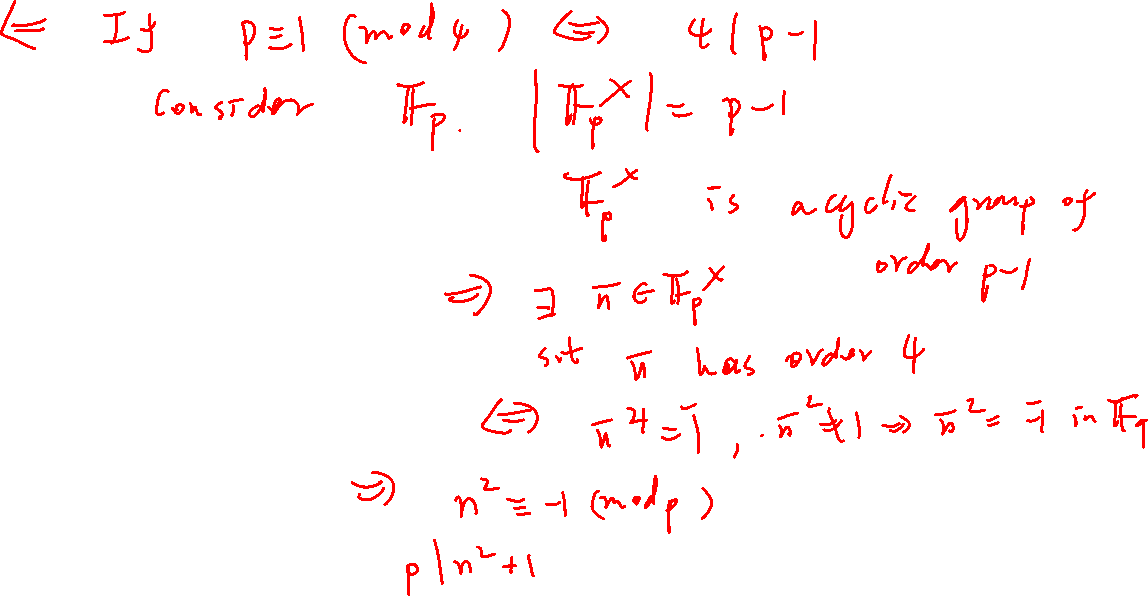 ⇐ If p≡1 (mod 4) ⇔ 4 | p-1
Consider 𝔽ₚ. |𝔽ₚˣ| = p-1
𝔽ₚˣ is a cyclic group of
order p-1
⇒ ∃ n̄ ∈ 𝔽ₚˣ
s.t n̄ has order 4
⇔ n̄⁴ = 1̄, n̄² ≠ 1 ⇒ n̄² = -1̄ in 𝔽ₚ
⇒ n² ≡ -1 (mod p)
p | n² + 1